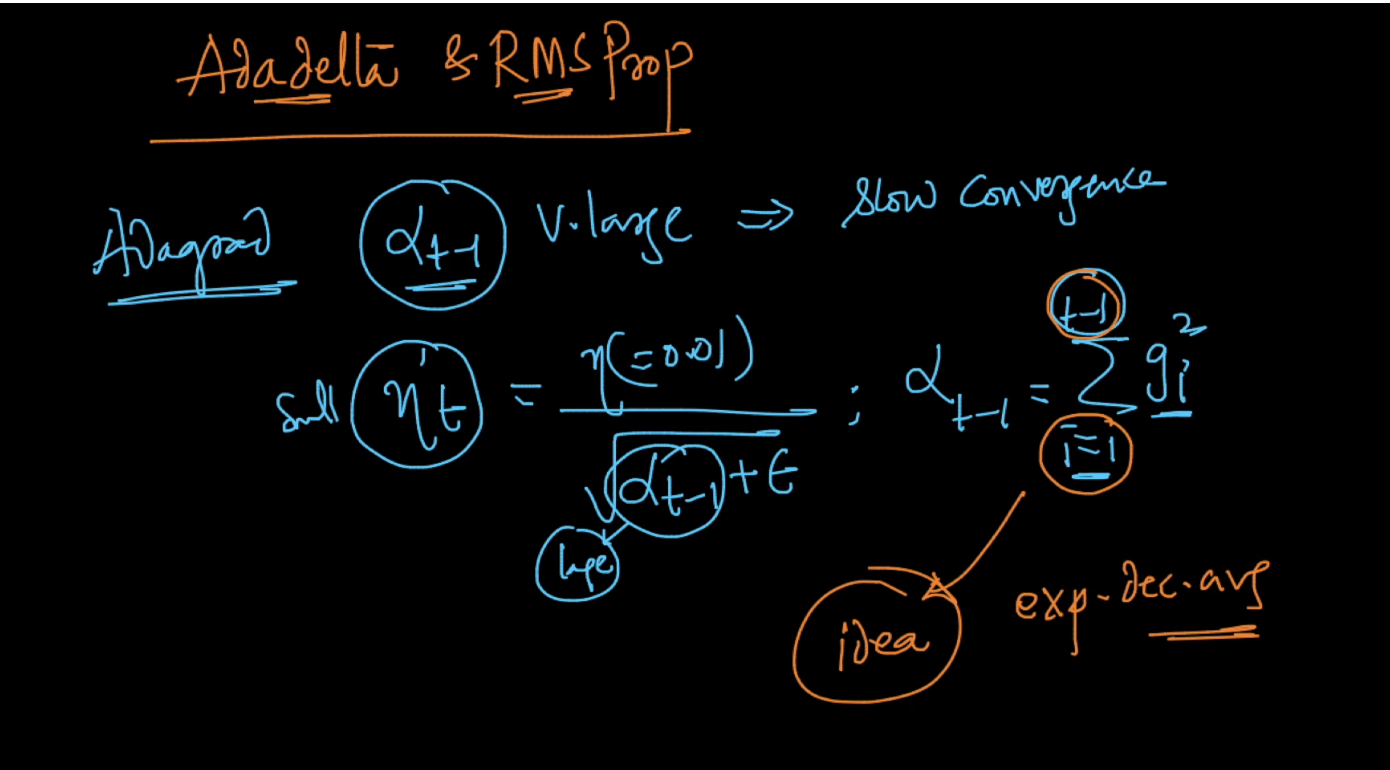 Adadelta & RMSProp
Adagrad α_{t-1} V.large ⇒ Slow Convergence
Small η'_t = η(=0.01) / √(α_{t-1} + ε) ; α_{t-1} = Σ_{i=1}^{t-1} g_i²
large
idea exp-dec.avg